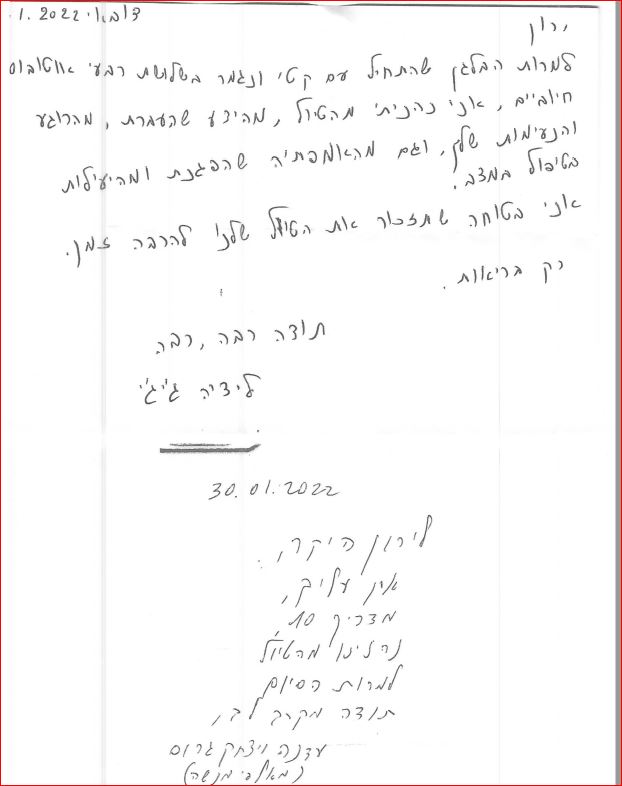 דובאי 1.2022.
ירון,
למרות הבלגן שהתחיל עם קטי ונגמר בשלושת רבעי אוטובוס
חיוביים, אני נהניתי מהטיול, מהידע שהעברת, מהרוגע
והנעימות שלך, וגם מהאמפתיה שהפגנת ומהיעילות
בטיפול במצב.
אני בטוחה שתזכור את הטיול שלנו להרבה זמן.
רק בריאות.
תודה רבה, רבה
לידיה ג'יג'י
30.01.2022
לירון היקר,
אין עליך,
מדריך 10,
נהנינו מהטיול
למרות הסיום
תודה מקרב לב,
עדנה ויצחק גרוס
(מאלפי מנשה)